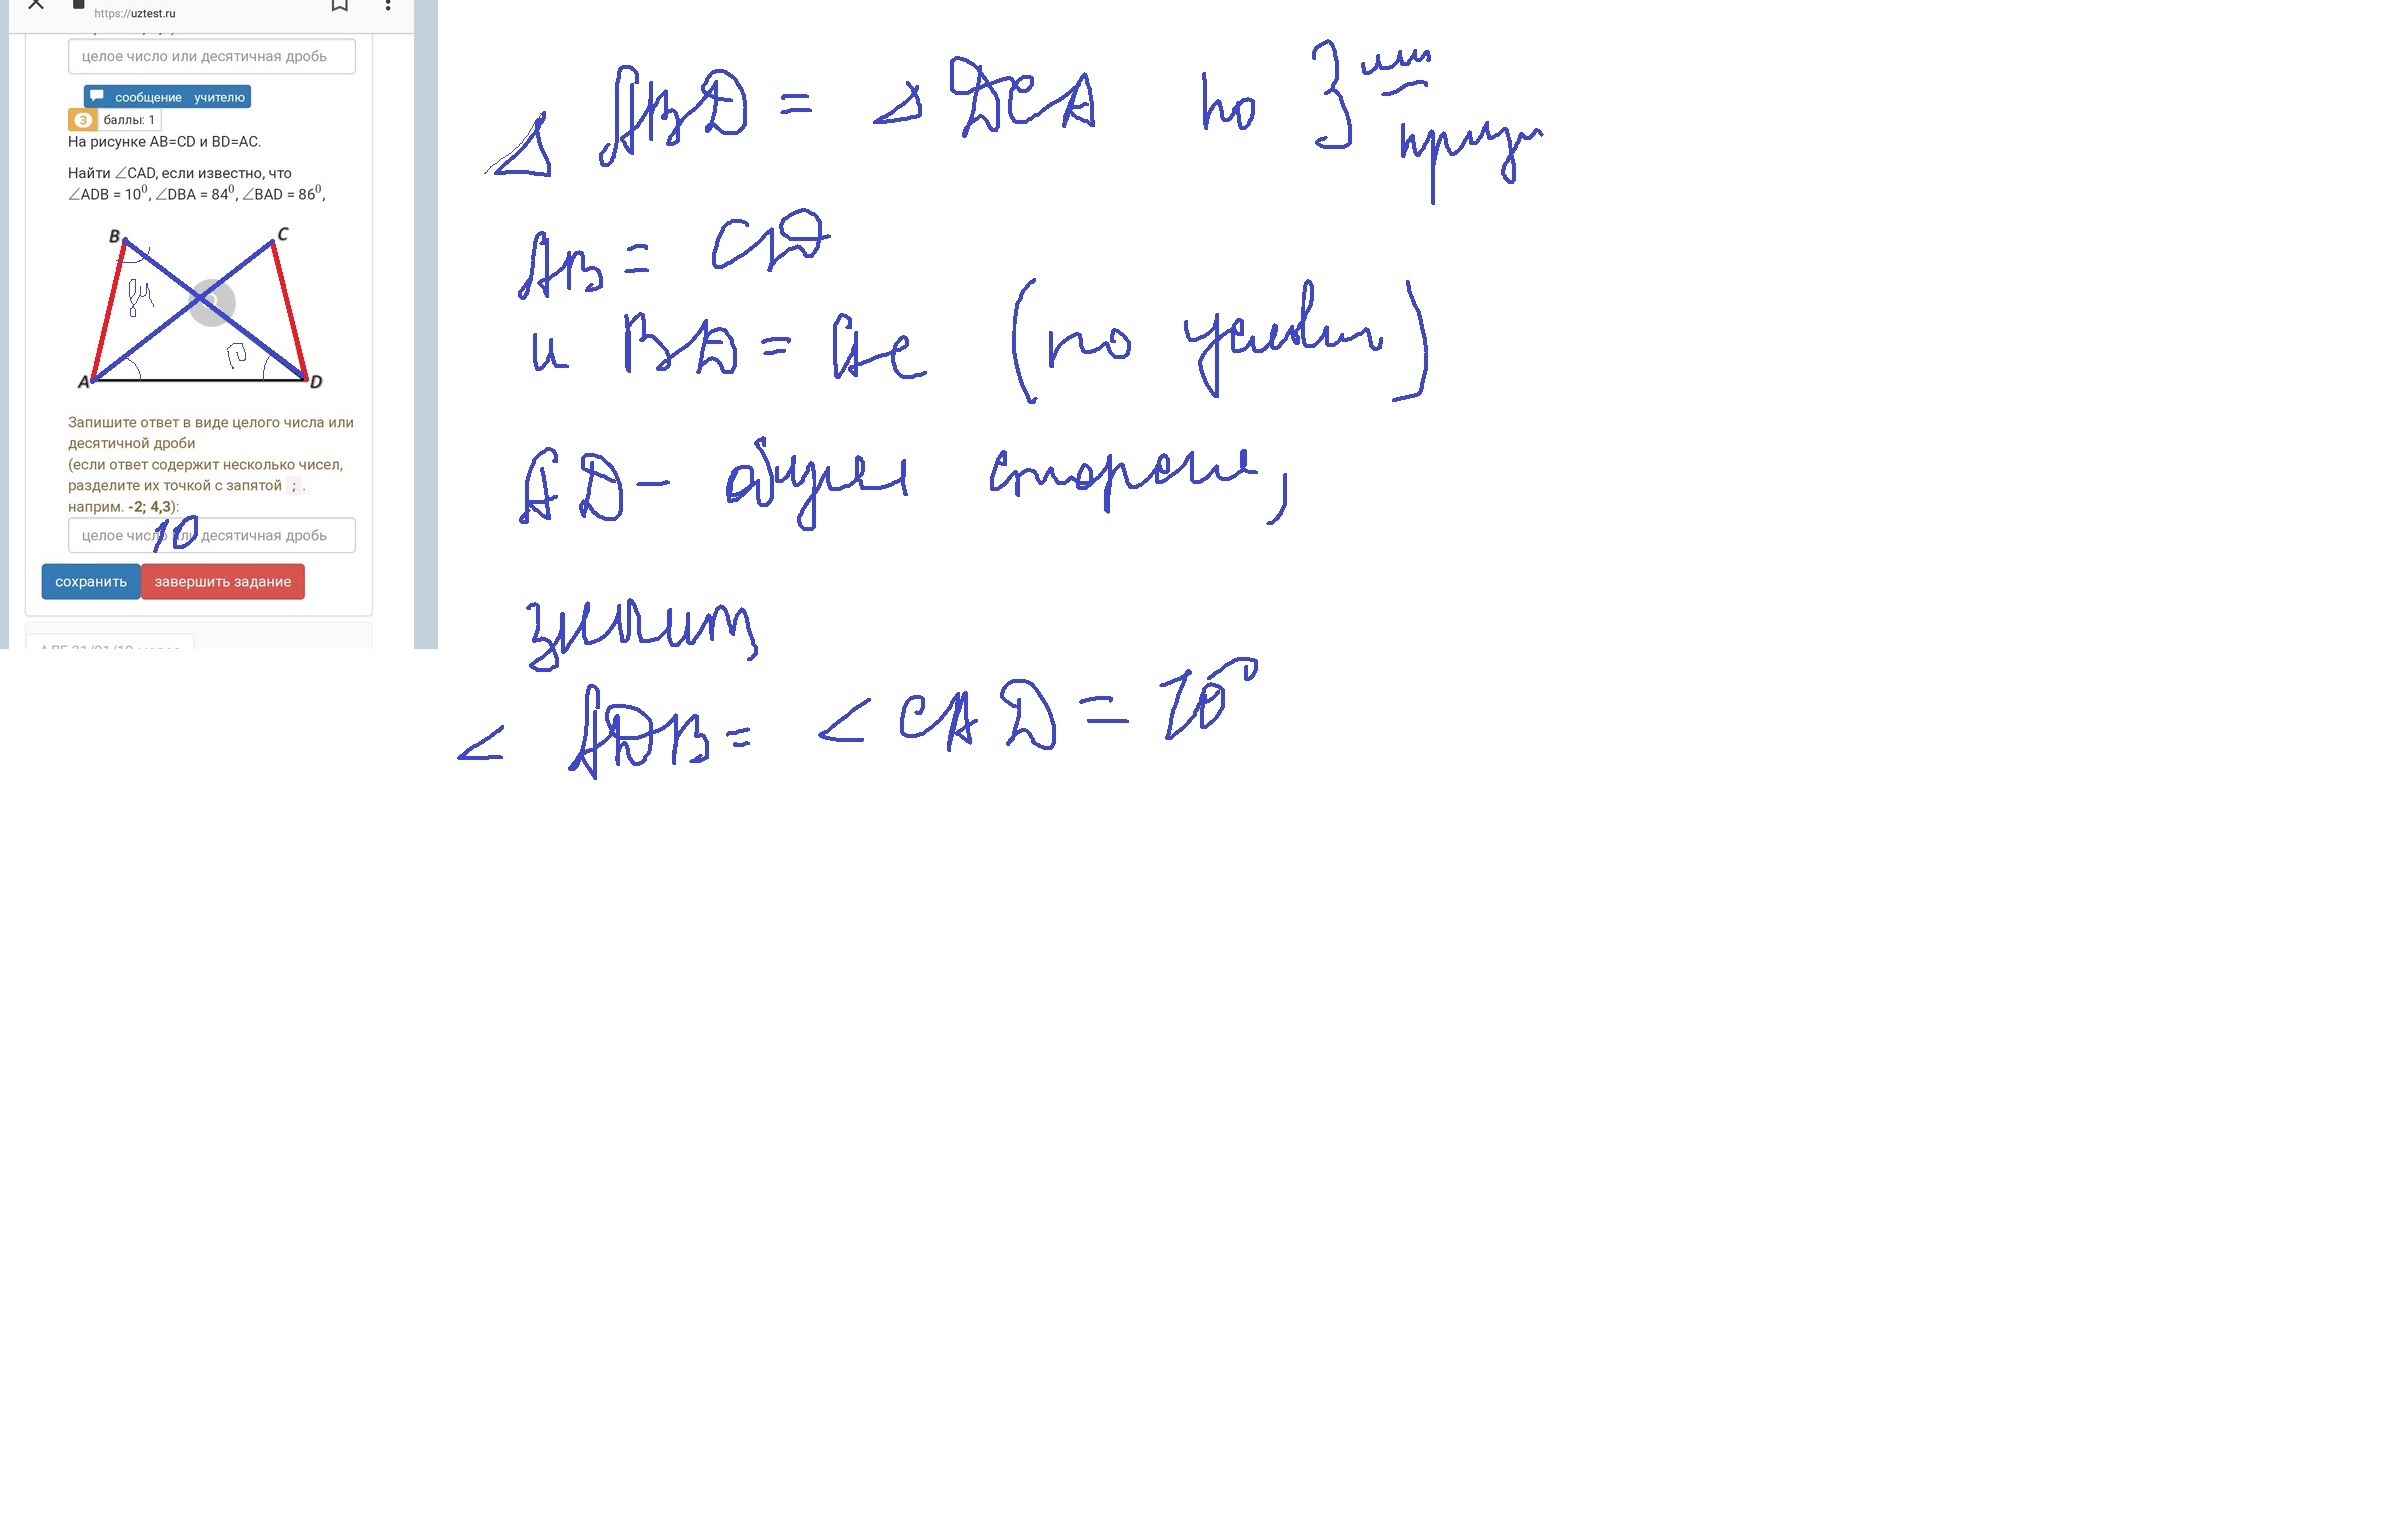 https://uztest.ru
целое число или десятичная дробь
сообщение учителю
3 баллы: 1
На рисунке AB=CD и BD=AC.
Найти ∠CAD, если известно, что
∠ADB = 10⁰, ∠DBA = 84⁰, ∠BAD = 86⁰,
B C
84
10
A D
Запишите ответ в виде целого числа или
десятичной дроби
(если ответ содержит несколько чисел,
разделите их точкой с запятой ; .
наприм. -2; 4,3):
целое число или десятичная дробь
10
сохранить завершить задание
△ ABD = △ DCA по 3
AB = CD
и BD = AC (по условию)
AD - общая сторона,
значит
∠ ADB = ∠ CAD = 10⁰